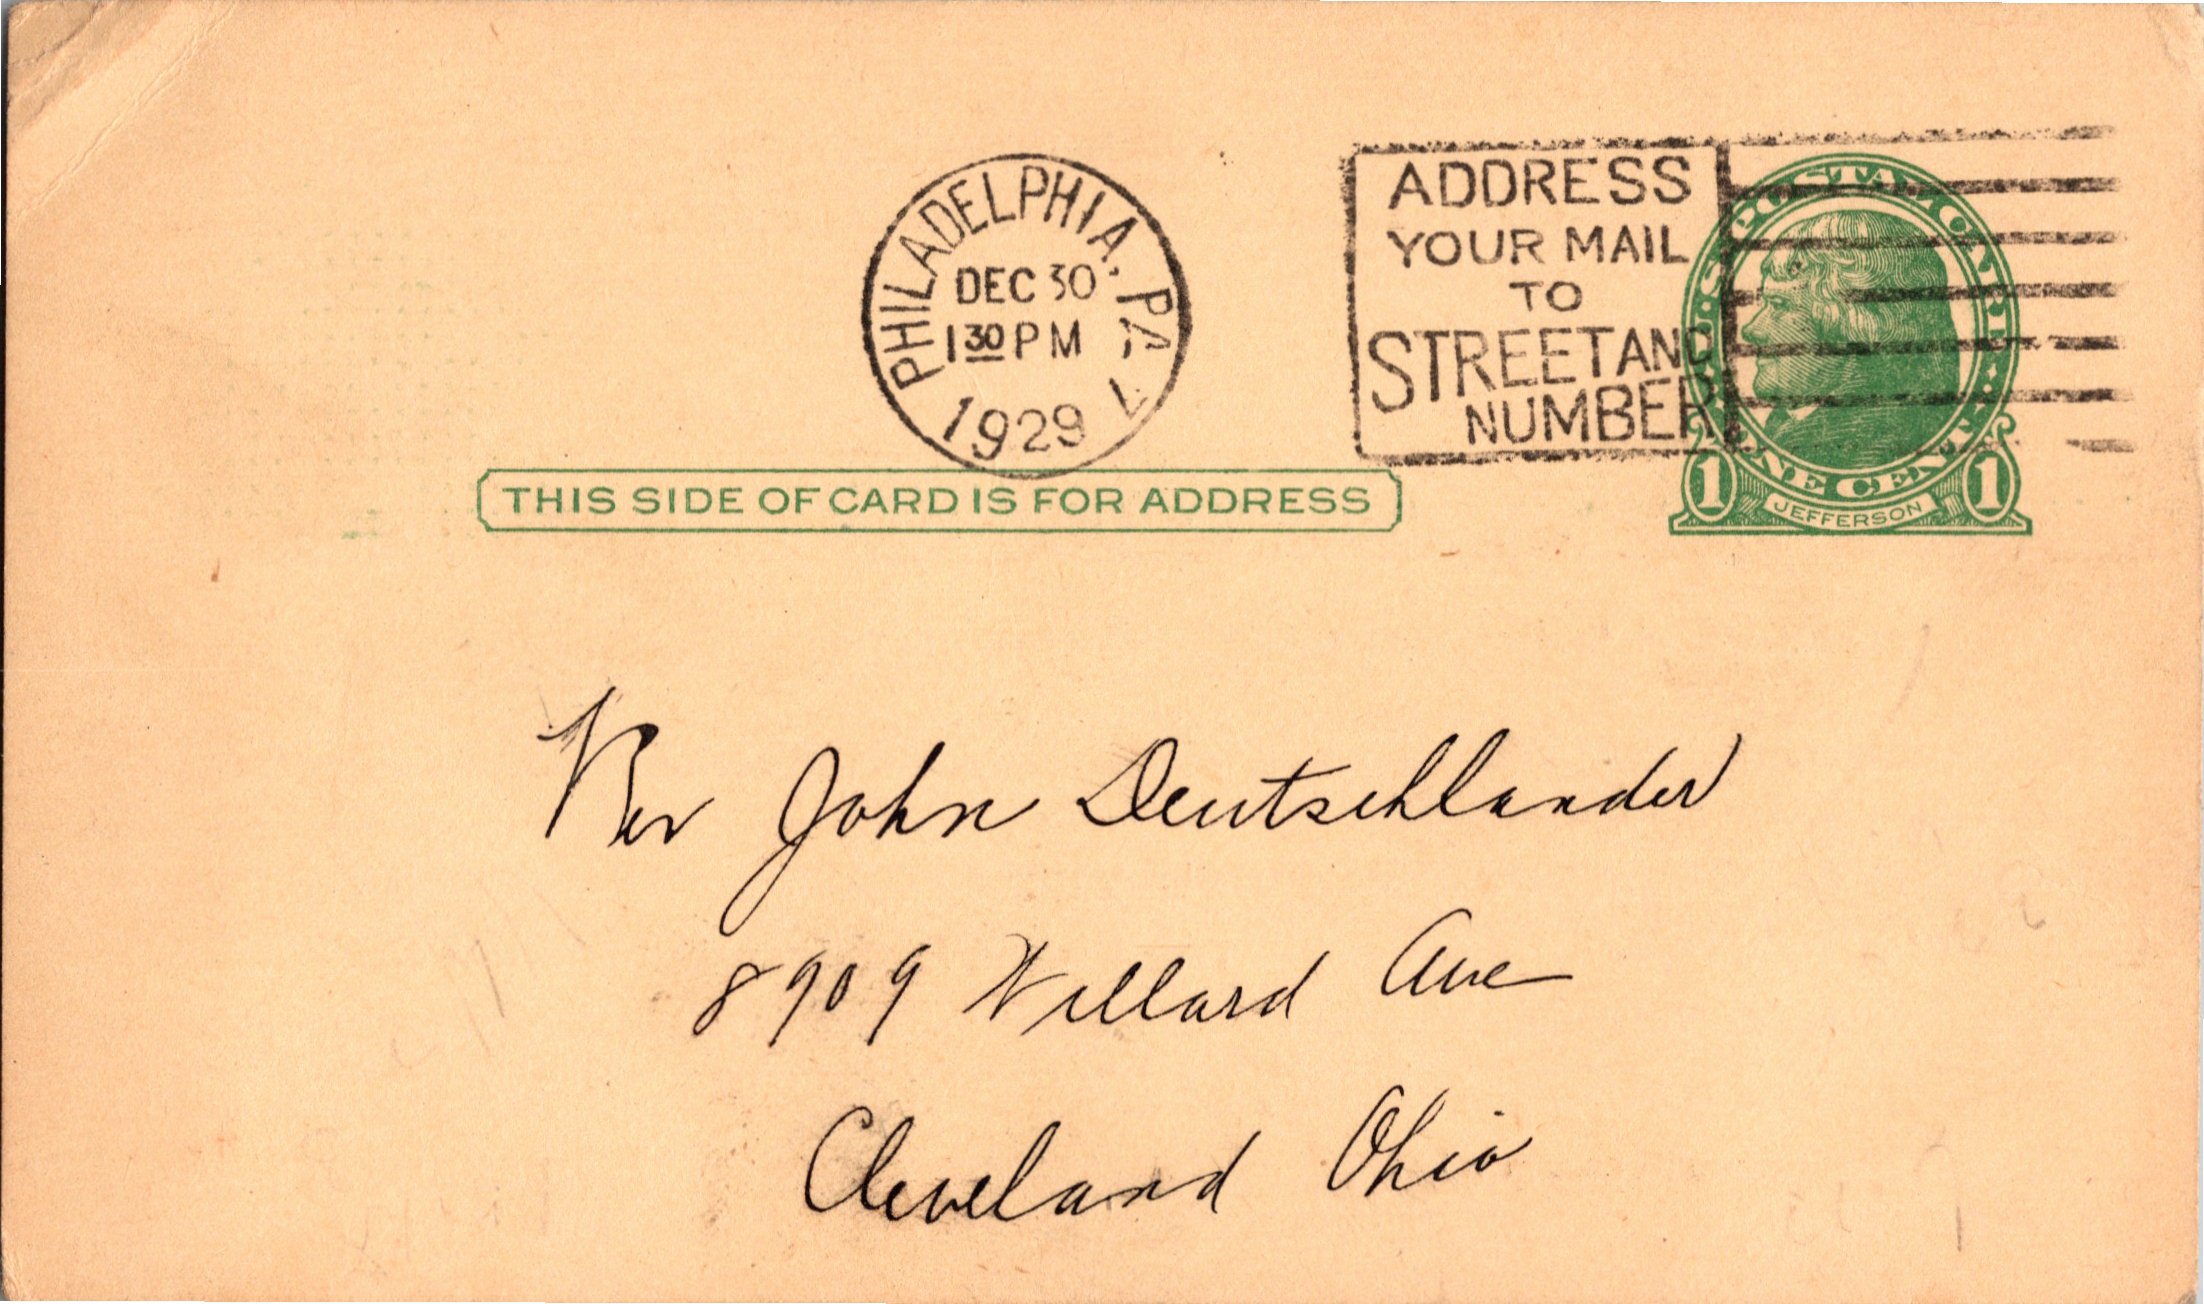 PHILADELPHIA, PA.
DEC 30
1 30 PM
1929
ADDRESS
YOUR MAIL
TO
STREET AND
NUMBER
U·S·POSTAL CARD
ONE CENT
1 JEFFERSON 1
THIS SIDE OF CARD IS FOR ADDRESS
Rev John Deutschlander
8909 Willard Ave
Cleveland Ohio